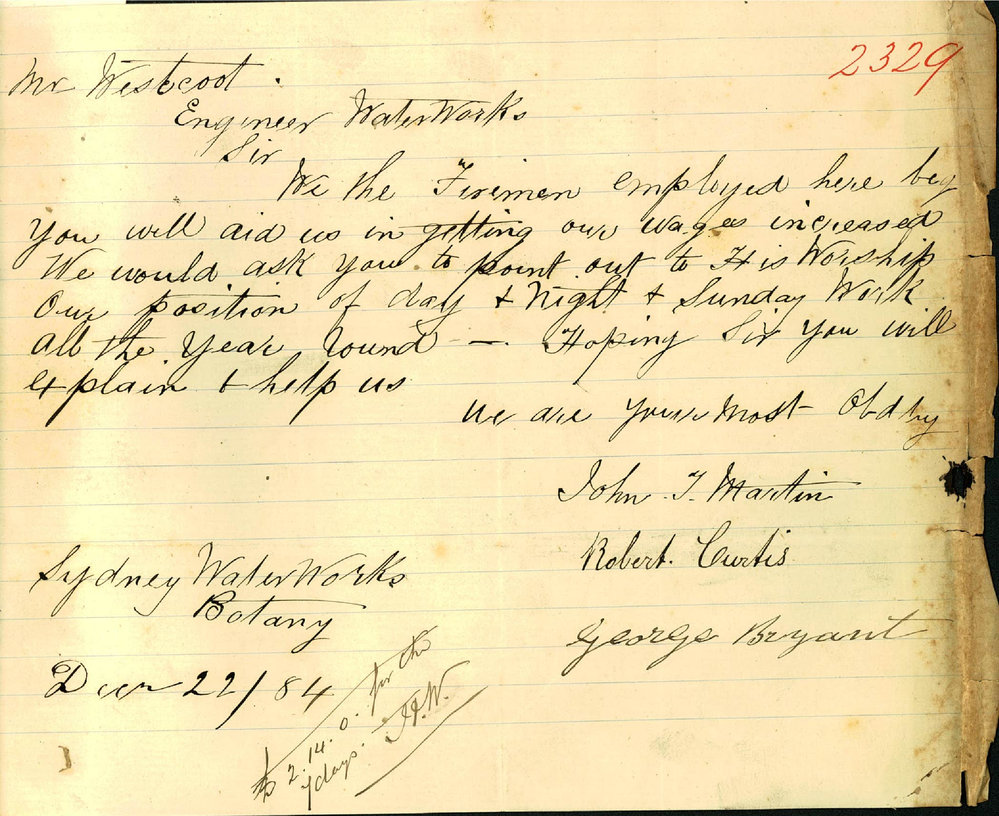 2329
Mr Westcoot.
Engineer WaterWorks
Sir
We the Firimen employed here beg
You will aid us in getting our wages increased
We would ask you to point out to His Worship
Our position of day & Night & Sunday Work
all the Year round —. Hoping Sir you will
explain & help us
We are Your Most Obd by
John T. Martin
Robert. Curtis
George Bryant
Sydney WaterWorks
Botany
Decr 22/84
2.14.0. for the
7 days.